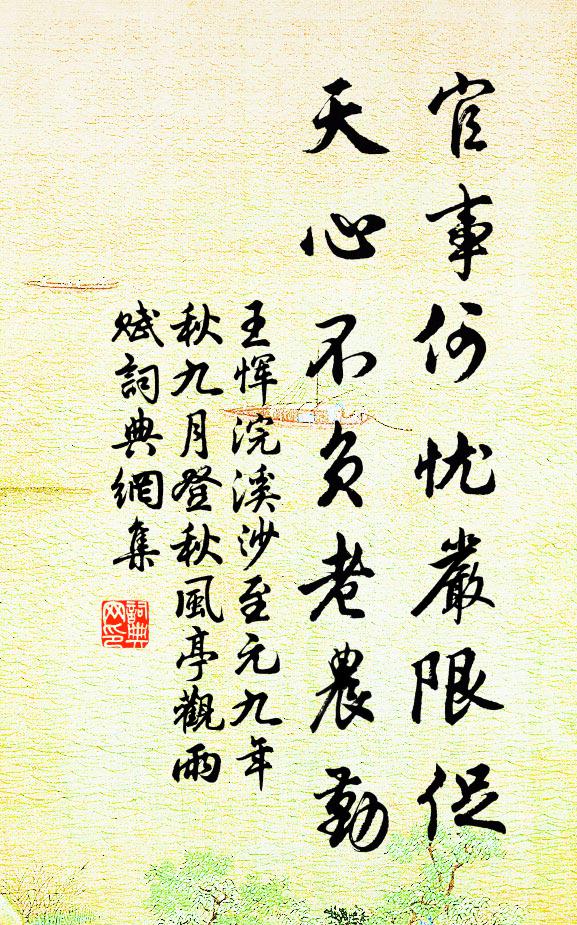 官事何忧嚴限促
天心不负老農勤
王恽浣溪沙至元九年
秋九月登秋風亭觀雨
赋詞典網集
詞典网印